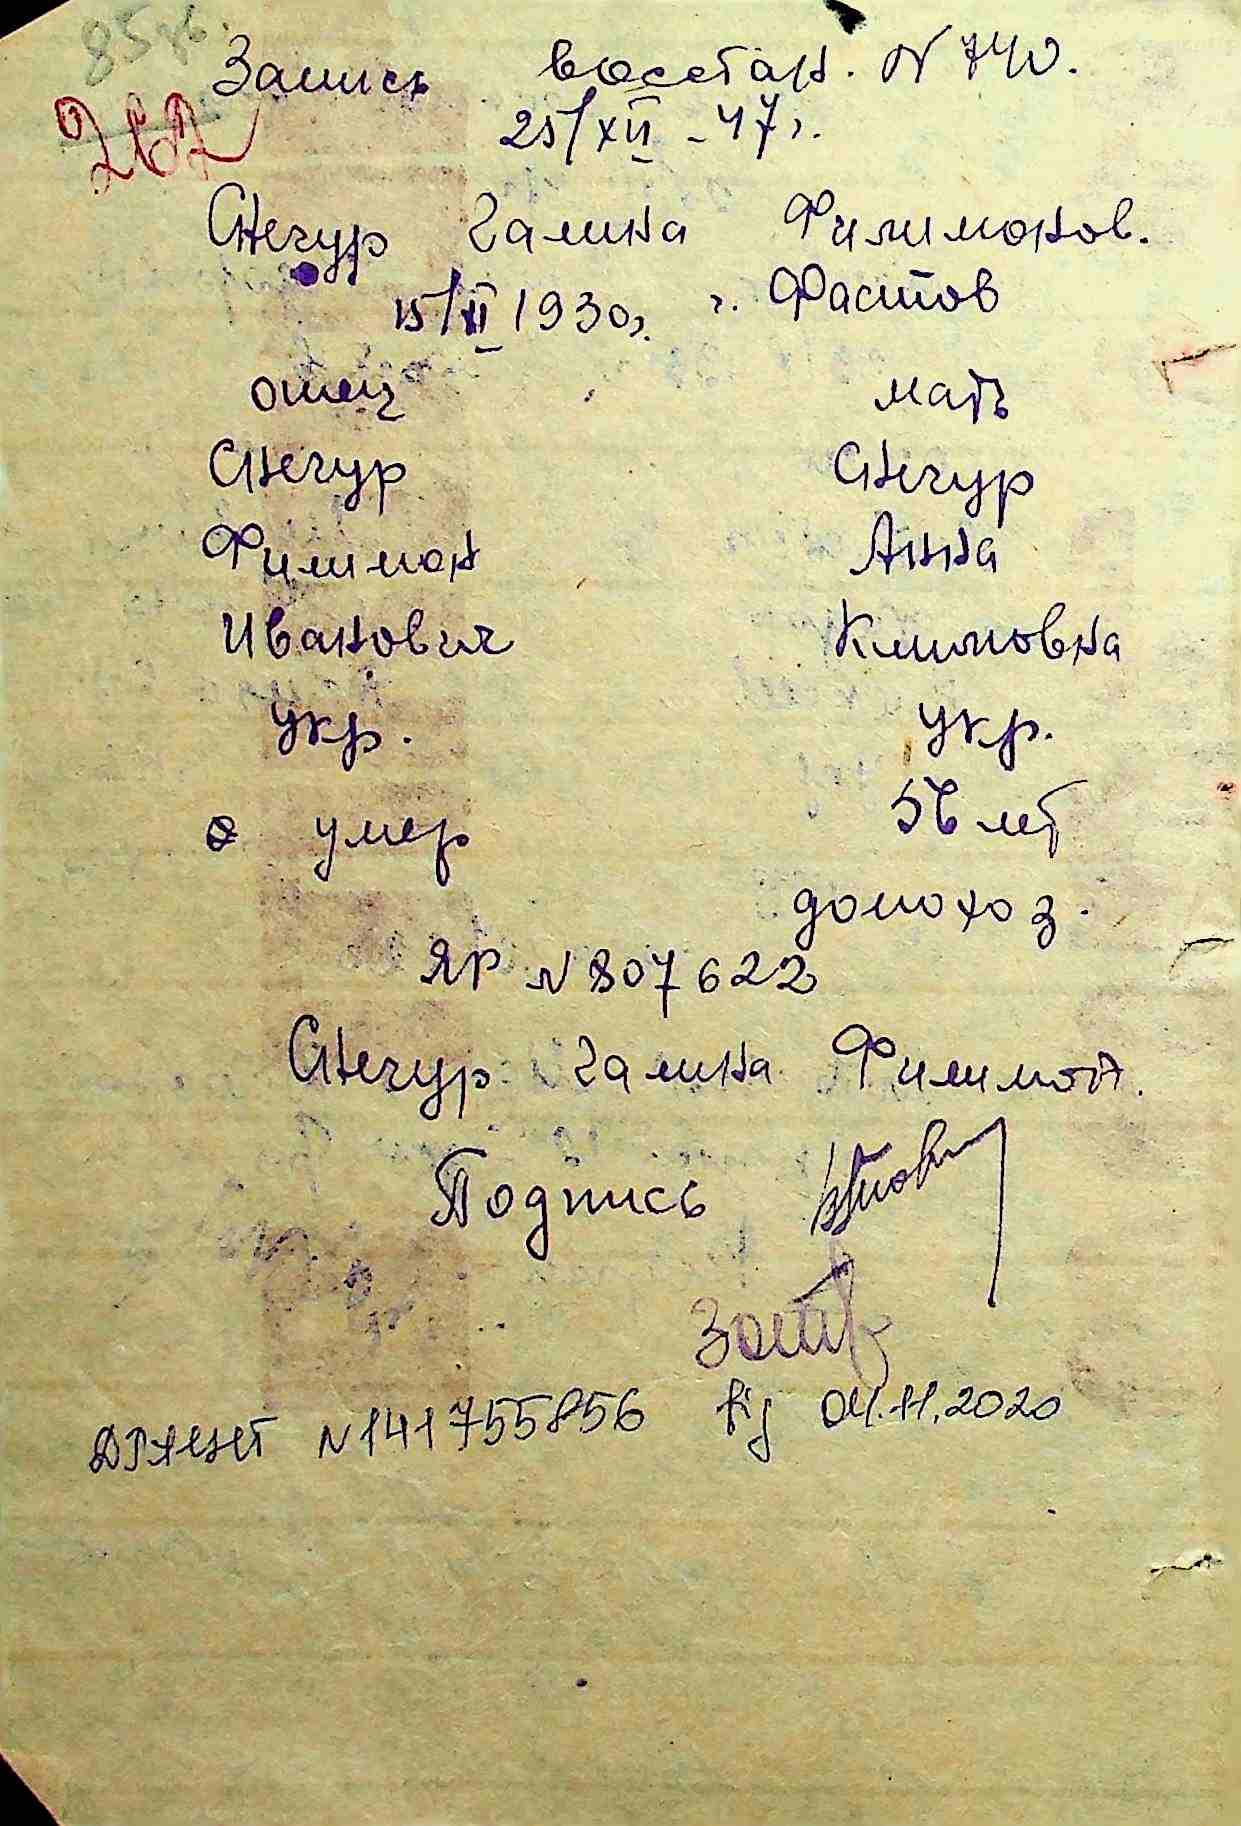 85 зв.
267
Запись восстан. N 740.
25/XII - 47 г.
Снегур Галина Филимонов.
15/XI 1930 г. г. Фастов
отец мать
Снегур Снегур
Филимон Анна
Иванович Климовна
укр. укр.
умер 56 лет
домохоз.
ЯР N 807622
Снегур Галина Филимон.
Подпись
ДРАЦСГ N 141755856 від 04.11.2020